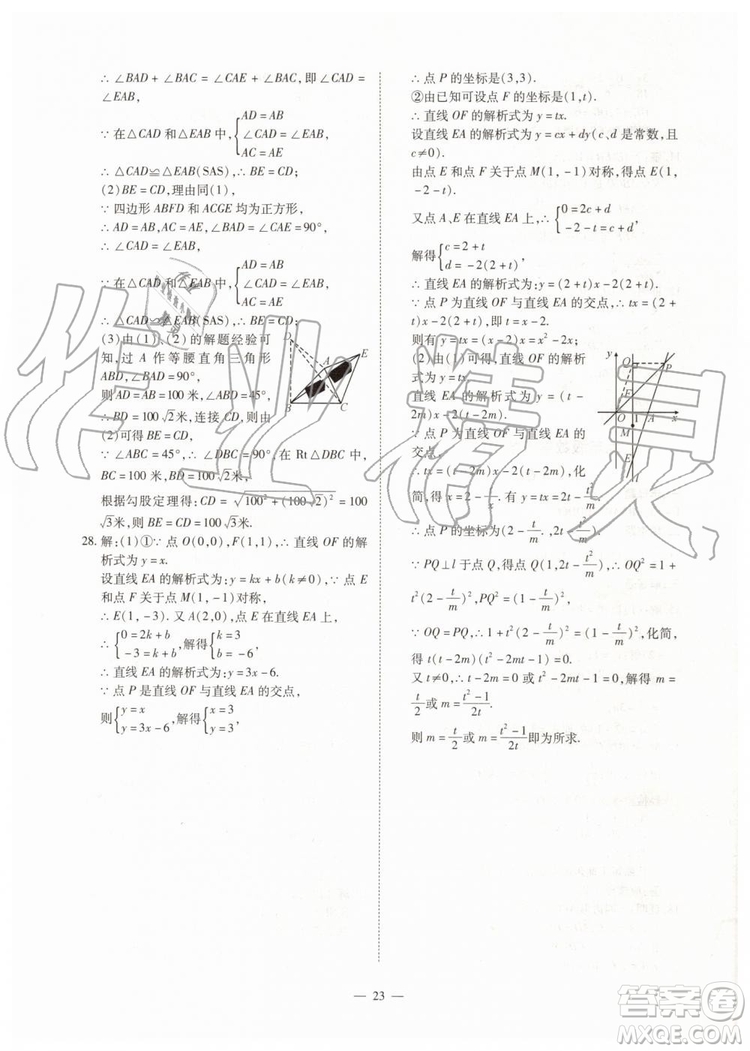 ∴ ∠BAD + ∠BAC = ∠CAE + ∠BAC, 即∠CAD =
∠EAB,
∵ 在△CAD 和△EAB 中, { AD = AB
∠CAD = ∠EAB
AC = AE
∴ △CAD≌△EAB(SAS), ∴ BE = CD;
(2)BE = CD, 理由同(1),
∵ 四边形 ABFD 和 ACGE 均为正方形,
∴ AD = AB, AC = AE, ∠BAD = ∠CAE = 90°,
∴ ∠CAD = ∠EAB,
∵ 在△CAD 和△EAB 中, { AD = AB
∠CAD = ∠EAB
AC = AE
∴ △CAD≌△EAB(SAS), ∴ BE = CD;
(3)由(1)、(2)的解题经验可
知, 过 A 作等腰直角三角形
ABD, ∠BAD = 90°,
则 AD = AB = 100 米, ∠ABD = 45°,
∴ BD = 100√2 米, 连接 CD, 则由
(2)可得 BE = CD,
∵ ∠ABC = 45°, ∴ ∠DBC = 90°, 在 Rt△DBC 中,
BC = 100 米, BD = 100√2 米,
根据勾股定理得: CD = √(100² + (100√2)²) = 100
√3米, 则 BE = CD = 100√3米.
28. 解:(1)①∵ 点 O(0,0), F(1,1), ∴ 直线 OF 的解
析式为 y = x.
设直线 EA 的解析式为: y = kx + b(k≠0), ∵ 点 E
和点 F 关于点 M(1, -1)对称,
∴ E(1, -3). 又 A(2,0), 点 E 在直线 EA 上,
∴ { 0 = 2k + b
-3 = k + b , 解得 { k = 3
b = -6 ,
∴ 直线 EA 的解析式为: y = 3x - 6.
∵ 点 P 是直线 OF 与直线 EA 的交点,
则 { y = x
y = 3x - 6 , 解得 { x = 3
y = 3 ,
A
E
B
C
∴ 点 P 的坐标是(3,3).
②由已知可设点 F 的坐标是(1,t).
∴ 直线 OF 的解析式为 y = tx.
设直线 EA 的解析式为 y = cx + dy(c、d 是常数, 且
c≠0).
由点 E 和点 F 关于点 M(1, -1)对称, 得点 E(1,
-2 - t).
又点 A、E 在直线 EA 上, ∴ { 0 = 2c + d
-2 - t = c + d ,
解得 { c = 2 + t
d = -2(2 + t) ,
∴ 直线 EA 的解析式为: y = (2 + t)x - 2(2 + t).
∵ 点 P 为直线 OF 与直线 EA 的交点, ∴ tx = (2 +
t)x - 2(2 + t), 即 t = x - 2.
则有 y = tx = (x - 2)x = x² - 2x;
(2)由(1)可得, 直线 OF 的解析
式为 y = tx.
直线 EA 的解析式为 y = (t -
2m)x - 2(t - 2m).
∵ 点 P 为直线 OF 与直线 EA 的
交点,
∴ tx = (t - 2m)x - 2(t - 2m), 化
简, 得 x = 2 - t/m. 有 y = tx = 2t - t²/m.
∴ 点 P 的坐标为(2 - t/m, 2t - t²/m).
∵ PQ⊥l 于点 Q, 得点 Q(1, 2t - t²/m), ∴ OQ² = 1 +
t²(2 - t/m)², PQ² = (1 - t/m)².
∵ OQ = PQ, ∴ 1 + t²(2 - t/m)² = (1 - t/m)², 化简,
得 t(t - 2m)(t² - 2mt - 1) = 0.
又 t≠0, ∴ t - 2m = 0 或 t² - 2mt - 1 = 0. 解得 m =
t/2 或 m = (t² - 1)/2t.
则 m = t/2 或 m = (t² - 1)/2t 即为所求.
y
Q
P
O
1
A
x
M
E
l
— 23 —
作业精灵
答案圈
MXQE.COM